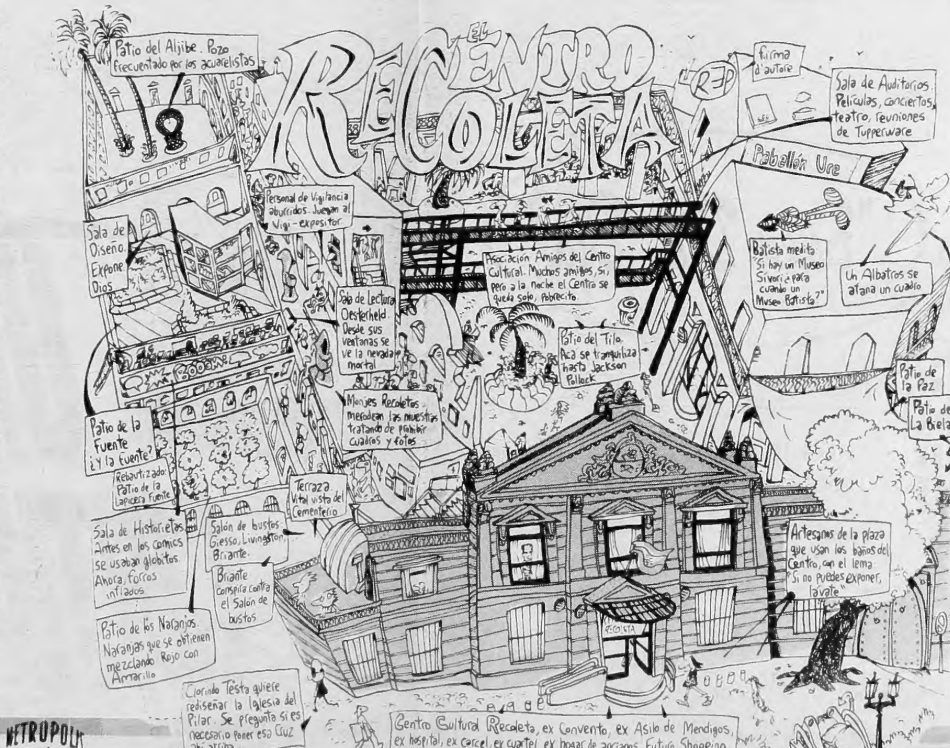 EL
CENTRO
RECOLETA
Patio del Aljibe. Pozo
frecuentado por los acuarelistas
RED
firma
d'autore
Sala de Auditorios.
Películas, conciertos,
teatro, reuniones
de Tupperware
Pabellón Ure
Personal de Vigilancia
aburridos. Juegan al
Vigi-expositor
Sala de
Diseño.
Expone
Dios
Asociación Amigos del Centro
Cultural. Muchos amigos, sí,
pero a la noche el Centro se
queda solo, pobrecito
Batista medita
"Si hay un Museo
Sívori ¿para
cuándo un
Museo Batista?"
Un Albatros se
afana un cuadro
Sala de Lectura
Oesterheld.
Desde sus
ventanas se
ve la nevada
mortal
Patio del Tilo.
Acá se tranquiliza
hasta Jackson
Pollock
Patio de
la Paz
Patio de
La Biela
Monjes Recoletos
merodean las muestras
tratando de prohibir
cuadros y fotos
Patio de la
Fuente
¿Y la fuente?
Rebautizado:
Patio de la
Lapicera Fuente
Terraza
Vital vista del
Cementerio
Sala de Historietas
Antes en los comics
se usaban globitos
Ahora, forros
inflados
Salón de bustos
Giesso, Livingston
Briante.
Briante
conspira contra
el Salón de
bustos
Artesanos de la plaza
que usan los baños del
Centro, con el lema:
"Si no puedes exponer,
lávate"
Patio de los Naranjos
Naranjas que se obtienen
mezclando Rojo con
Amarillo
RECOLETA
Clorindo Testa quiere
rediseñar la Iglesia del
Pilar. Se pregunta si es
necesario poner esa Cruz
ahí arriba
Centro Cultural Recoleta, ex Convento, ex Asilo de Mendigos,
ex hospital, ex cárcel, ex cuartel, ex hogar de ancianos. Futuro Shopping
METROPOLIS